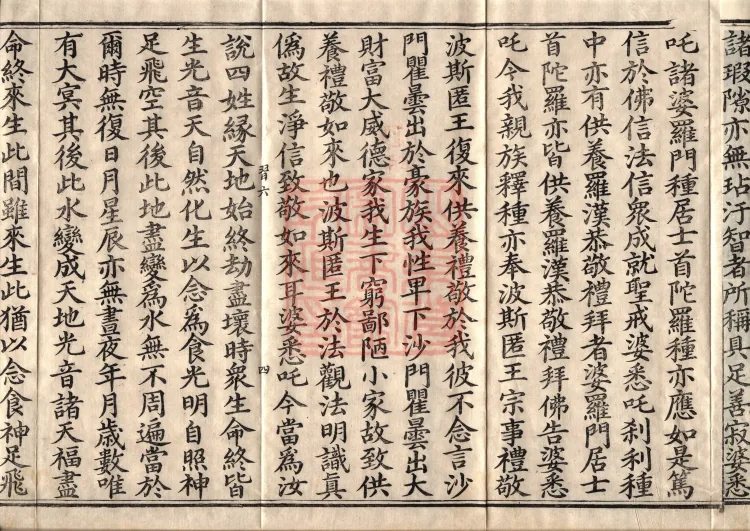 諸瑕隙亦無玷汙智者所稱具足善寂婆悉
吒諸婆羅門種居士首陀羅種亦應如是篤
信於佛信法信衆成就聖戒婆悉吒刹利種
中亦有供養羅漢恭敬禮拜者婆羅門居士
首陀羅亦皆供養羅漢恭敬禮拜佛告婆悉
吒今我親族釋種亦奉波斯匿王宗事禮敬
波斯匿王復來供養禮敬於我彼不念言沙
門瞿曇出於豪族我性卑下沙門瞿曇出大
財富大威德家我生下窮鄙陋小家故致供
養禮敬如來也波斯匿王於法觀法明識真
僞故生淨信致敬如來耳婆悉吒今當爲汝
習六 四
說四姓緣天地始終劫盡壞時衆生命終皆
生光音天自然化生以念爲食光明自照神
足飛空其後此地盡變爲水無不周遍當於
爾時無復日月星辰亦無晝夜年月歲數唯
有大冥其後此水變成天地光音諸天福盡
命終來生此間雖來生此猶以念食神足飛